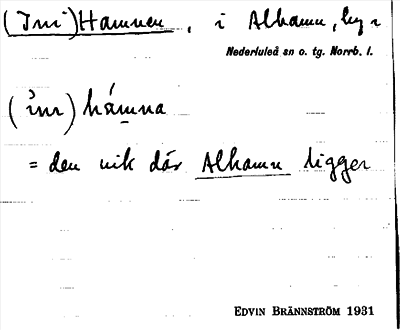 (Inni)Hamnen, i Alhamn, by i
Nederluleå sn o. tg. Norrb. l.
(i̓nı) hámna
= den vik där Alhamn ligger
EDVIN BRÄNNSTRÖM 1931